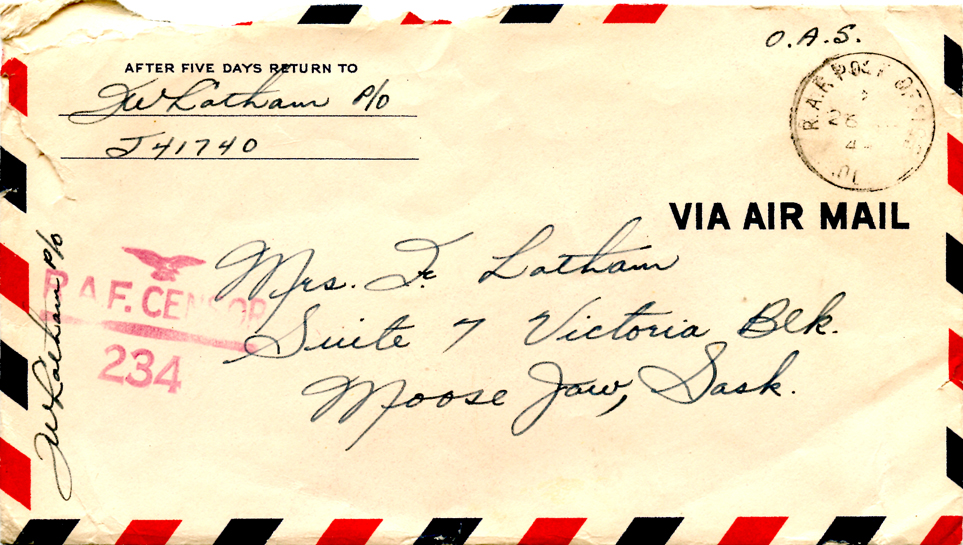 O.A.S.
AFTER FIVE DAYS RETURN TO
JW Latham P/O
J41740
R.A.F. POST OFFICE
28
4
01
VIA AIR MAIL
Mrs. F. Latham
Suite 7 Victoria Blk.
Moose Jaw, Sask.
R.A.F. CENSOR
234
JW Latham P/O